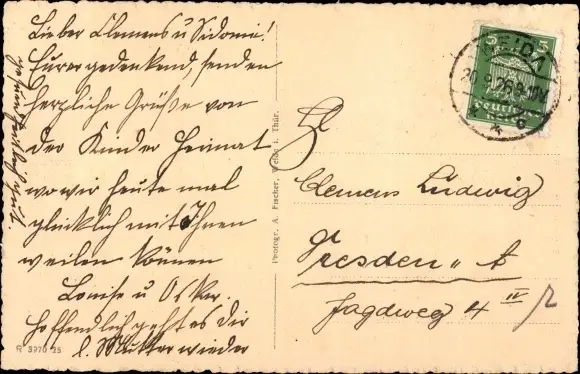 Lieber Clemens u Sidonie!
Eurer gedenkend, senden
herzliche Grüße von
der Kinder Heimat
wo wir heute mal
glücklich mit Ihnen
weilen können
Louise u Oskar.
Hoffentlich geht es Dir
l. Mutter wieder
R 3970 25
Photogr. A. Fischer, Weida i. Thür.
WEIDA
20.9.26.8-10V.
* c
5 5
Deutsches
Clemens Ludwig
Dresden " A
Jagdweg 4 IV